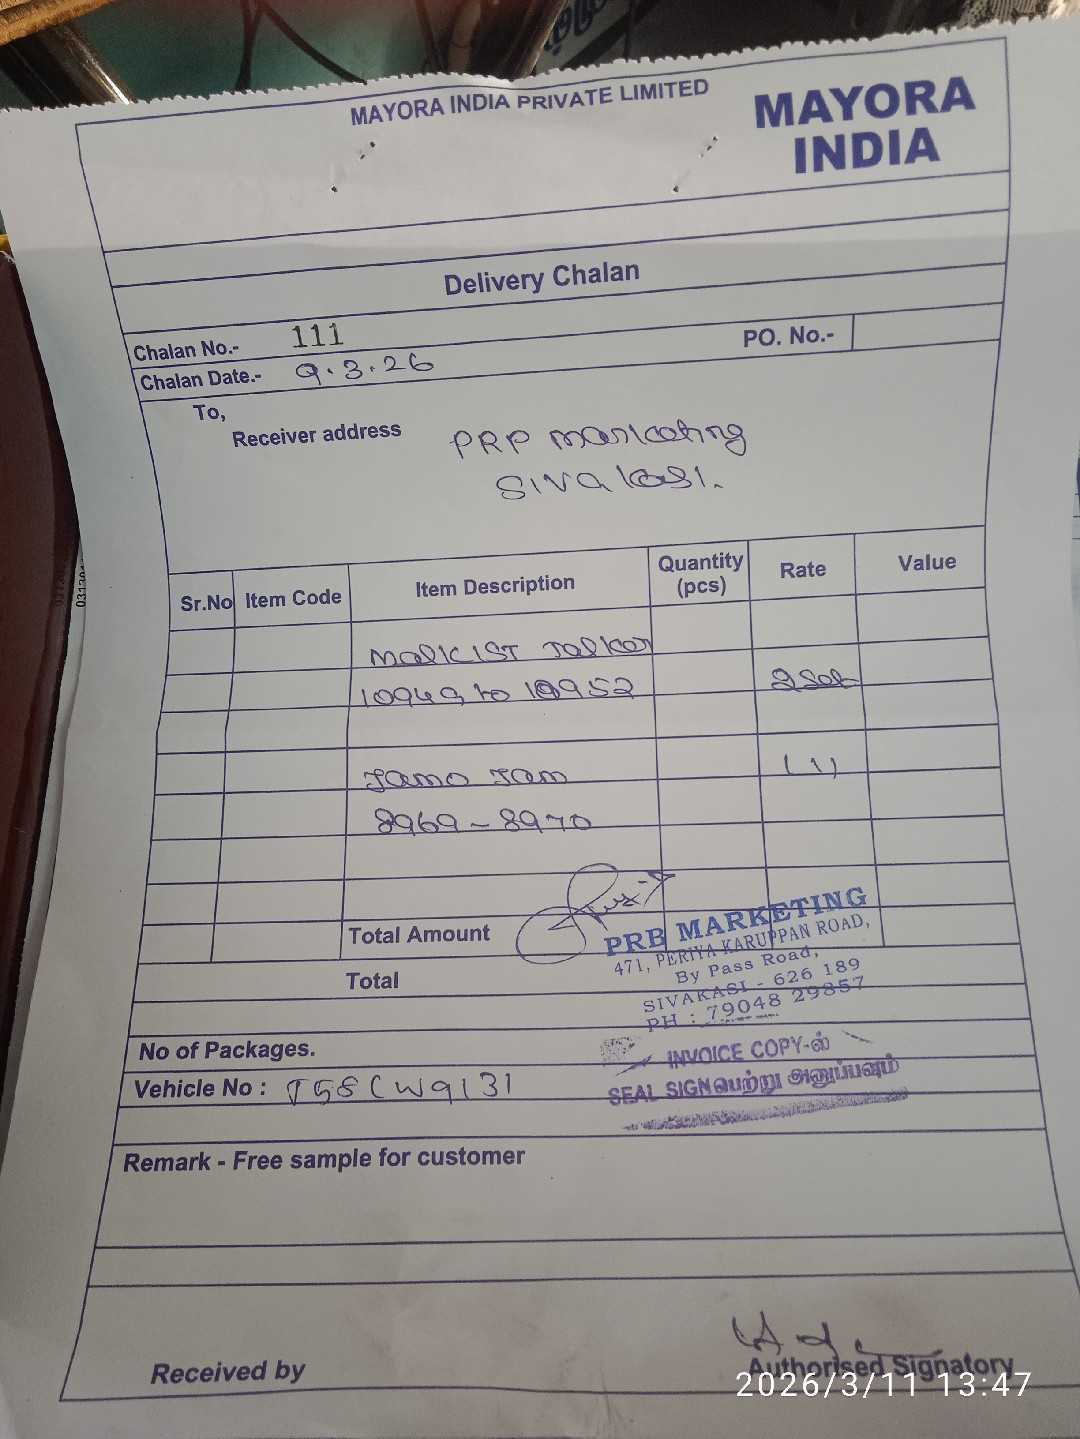 MAYORA INDIA PRIVATE LIMITED
MAYORA
INDIA
Delivery Chalan
Chalan No.- 111
PO. No.-
Chalan Date.- 9.3.26
To,
Receiver address
PRP marketing
SIVakasi.
Sr.No Item Code Item Description Quantity (pcs) Rate Value
MalKIST
10949 to 10952 2 Set
Jamo Jam (1)
8969 - 8970
Total Amount
Total
PRB MARKETING
471, PERIYA KARUPPAN ROAD,
By Pass Road,
SIVAKASI - 626 189
PH : 79048 29857
No of Packages.
INVOICE COPY-ல்
SEAL SIGN பெற்று அனுப்பவும்
Vehicle No : CW9131
Remark - Free sample for customer
Received by
Authorised Signatory
2026/3/11 13:47